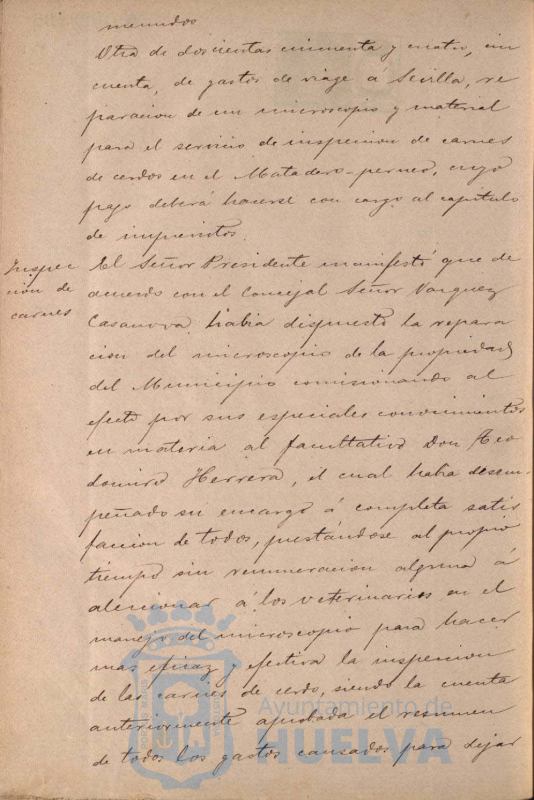 menudos
Otra de doscientas cincuenta y cuatro, cin
cuenta, de gastos de viage á Sevilla, re
paracion de un microscopio y material
para el servicio de inspeccion de carnes
de cerdos en el Matadero-perneo, cuyo
pago deberá hacerse con cargo al capitulo
de imprevistos.
Inspec
cion de
carnes
El Señor Presidente manifestó que de
acuerdo con el Concejal Señor Vazquez
Casanova habia dispuesto la repara
cion del microscopio de la propiedad
del Municipio comisionando al
efecto por sus especiales conocimientos
en materia al facultativo Don Teo
domiro Herrera, el cual habia desem-
peñado su encargo á completa satis
faccion de todos, prestándose al propio
tiempo sin remuneracion alguna á
aleccionar á los veterinarios en el
manejo del microscopio para hacer
mas eficaz y efectiva la inspeccion
de las carnes de cerdo, siendo la cuenta
anteriormente aprobada el resumen
de todos los gastos causados para dejar
Ayuntamiento de
HUELVA